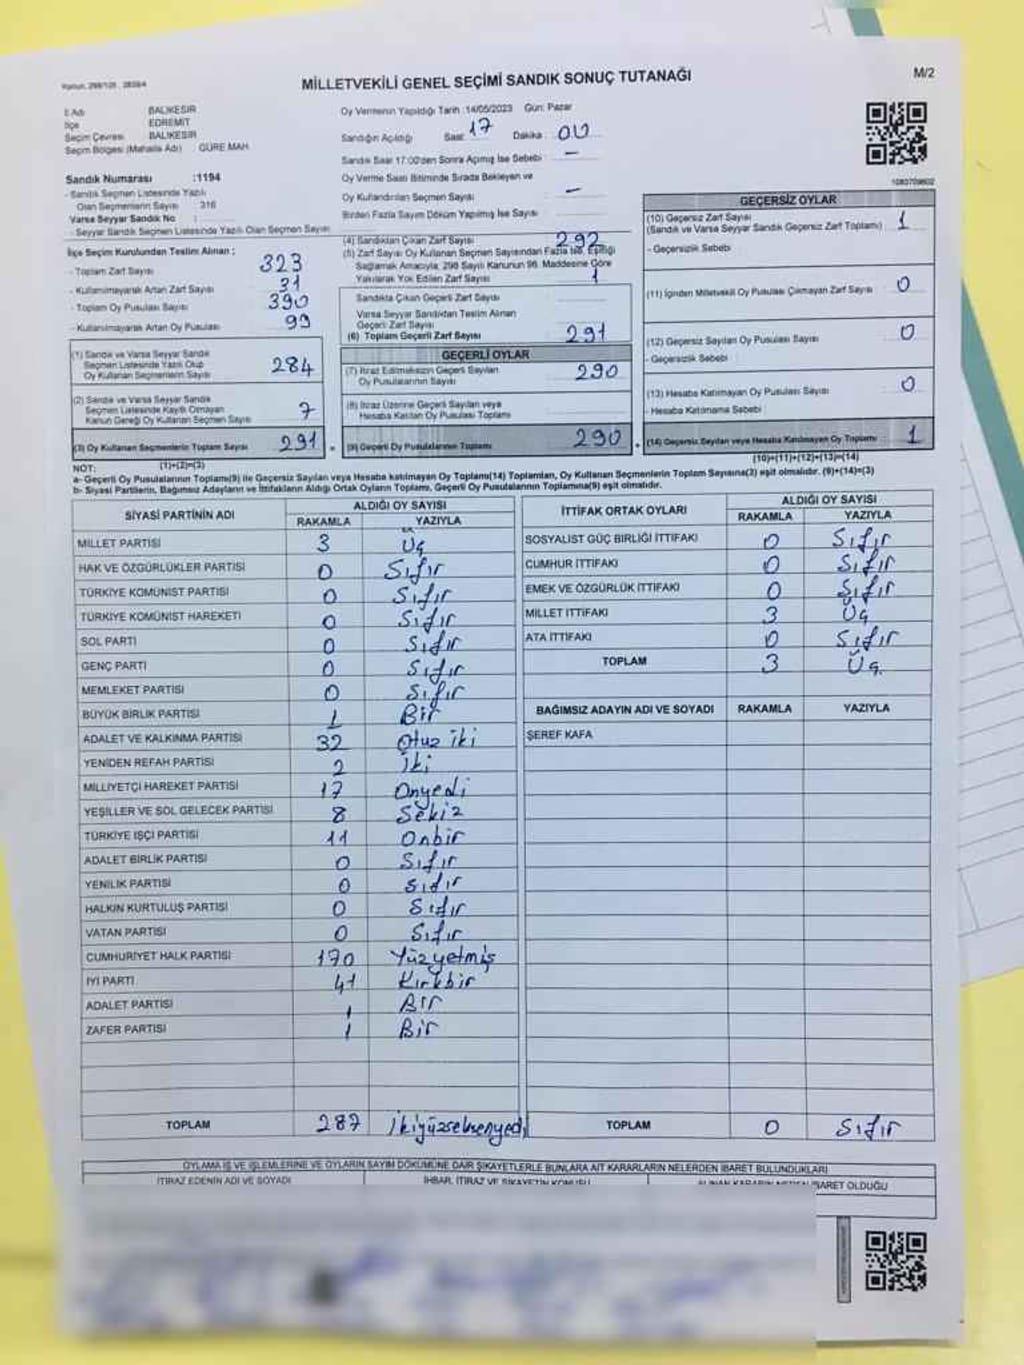 MİLLETVEKİLİ GENEL SEÇİMİ SANDIK SONUÇ TUTANAĞI
M/2
İl Adı BALIKESİR
İlçe EDREMİT
Seçim Çevresi BALIKESİR
Seçim Bölgesi (Mahalle Adı) GÜRE MAH.
Sandık Numarası :1194
- Sandık Seçmen Listesinde Yazılı
Olan Seçmenlerin Sayısı : 316
Varsa Seyyar Sandık No :
- Seyyar Sandık Seçmen Listesinde Yazılı Olan Seçmen Sayısı
Oy Vermenin Yapıldığı Tarih :14/05/2023 Gün: Pazar
Sandığın Açıldığı Saat 17 Dakika 00
Sandık Saat 17:00'den Sonra Açılmış İse Sebebi : —
Oy Verme Saati Bitiminde Sırada Bekleyen ve
Oy Kullandırılan Seçmen Sayısı —
Birden Fazla Sayım Döküm Yapılmış İse Sayısı
1080709602
İlçe Seçim Kurulundan Teslim Alınan ;
- Toplam Zarf Sayısı 323
- Kullanılmayarak Artan Zarf Sayısı 31
- Toplam Oy Pusulası Sayısı 390
- Kullanılmayarak Artan Oy Pusulası 99
(1) Sandık ve Varsa Seyyar Sandık
Seçmen Listesinde Yazılı Olup
Oy Kullanan Seçmenlerin Sayısı 284
(2) Sandık ve Varsa Seyyar Sandık
Seçmen Listesinde Kayıtlı Olmayan
Kanun Gereği Oy Kullanan Seçmen Sayısı 7
(3) Oy Kullanan Seçmenlerin Toplam Sayısı 291
(1)+(2)=(3)
(4) Sandıktan Çıkan Zarf Sayısı 292
(5) Zarf Sayısı Oy Kullanan Seçmen Sayısından Fazla İse, Eşitliği
Sağlamak Amacıyla, 298 Sayılı Kanunun 98. Maddesine Göre
Yakılarak Yok Edilen Zarf Sayısı 1
Sandıkta Çıkan Geçerli Zarf Sayısı
Varsa Seyyar Sandıktan Teslim Alınan
Geçerli Zarf Sayısı
(6) Toplam Geçerli Zarf Sayısı 291
GEÇERLİ OYLAR
(7) İtiraz Edilmeksizin Geçerli Sayılan
Oy Pusulalarının Sayısı 290
(8) İtiraz Üzerine Geçerli Sayılan veya
Hesaba Katılan Oy Pusulası Toplamı
(9) Geçerli Oy Pusulalarının Toplamı 290
GEÇERSİZ OYLAR
(10) Geçersiz Zarf Sayısı 1
(Sandık ve Varsa Seyyar Sandık Geçersiz Zarf Toplamı)
- Geçersizlik Sebebi
(11) İçinden Milletvekili Oy Pusulası Çıkmayan Zarf Sayısı 0
(12) Geçersiz Sayılan Oy Pusulası Sayısı 0
- Geçersizlik Sebebi
(13) Hesaba Katılmayan Oy Pusulası Sayısı 0
- Hesaba Katılmama Sebebi
(14) Geçersiz Sayılan veya Hesaba Katılmayan Oy Toplamı 1
(10)+(11)+(12)+(13)=(14)
NOT:
a- Geçerli Oy Pusulalarının Toplamı(9) ile Geçersiz Sayılan veya Hesaba katılmayan Oy Toplamı(14) Toplamları, Oy Kullanan Seçmenlerin Toplam Sayısına(3) eşit olmalıdır. (9)+(14)=(3)
b- Siyasi Partilerin, Bağımsız Adayların ve İttifakların Aldığı Ortak Oyların Toplamı, Geçerli Oy Pusulalarının Toplamına(9) eşit olmalıdır.
SİYASİ PARTİNİN ADI ALDIĞI OY SAYISI
RAKAMLA YAZIYLA
MİLLET PARTİSİ 3 Üç
HAK VE ÖZGÜRLÜKLER PARTİSİ 0 Sıfır
TÜRKİYE KOMÜNİST PARTİSİ 0 Sıfır
TÜRKİYE KOMÜNİST HAREKETİ 0 Sıfır
SOL PARTİ 0 Sıfır
GENÇ PARTİ 0 Sıfır
MEMLEKET PARTİSİ 0 Sıfır
BÜYÜK BİRLİK PARTİSİ 1 Bir
ADALET VE KALKINMA PARTİSİ 32 Otuz iki
YENİDEN REFAH PARTİSİ 2 İki
MİLLİYETÇİ HAREKET PARTİSİ 17 Onyedi
YEŞİLLER VE SOL GELECEK PARTİSİ 8 Sekiz
TÜRKİYE İŞÇİ PARTİSİ 11 Onbir
ADALET BİRLİK PARTİSİ 0 Sıfır
YENİLİK PARTİSİ 0 Sıfır
HALKIN KURTULUŞ PARTİSİ 0 Sıfır
VATAN PARTİSİ 0 Sıfır
CUMHURİYET HALK PARTİSİ 170 Yüzyetmiş
İYİ PARTİ 41 Kırkbir
ADALET PARTİSİ 1 Bir
ZAFER PARTİSİ 1 Bir
TOPLAM 287 İkiyüzseksenyedi
İTTİFAK ORTAK OYLARI ALDIĞI OY SAYISI
RAKAMLA YAZIYLA
SOSYALİST GÜÇ BİRLİĞİ İTTİFAKI 0 Sıfır
CUMHUR İTTİFAKI 0 Sıfır
EMEK VE ÖZGÜRLÜK İTTİFAKI 0 Sıfır
MİLLET İTTİFAKI 3 Üç
ATA İTTİFAKI 0 Sıfır
TOPLAM 3 Üç
BAĞIMSIZ ADAYIN ADI VE SOYADI RAKAMLA YAZIYLA
ŞEREF KAFA
TOPLAM 0 Sıfır
OYLAMA İŞ VE İŞLEMLERİNE VE OYLARIN SAYIM DÖKÜMÜNE DAİR ŞİKAYETLERLE BUNLARA AİT KARARLARIN NELERDEN İBARET BULUNDUKLARI
İTİRAZ EDENİN ADI VE SOYADI
İHBAR, İTİRAZ VE ŞİKAYETİN KONUSU
İBARET OLDUĞU